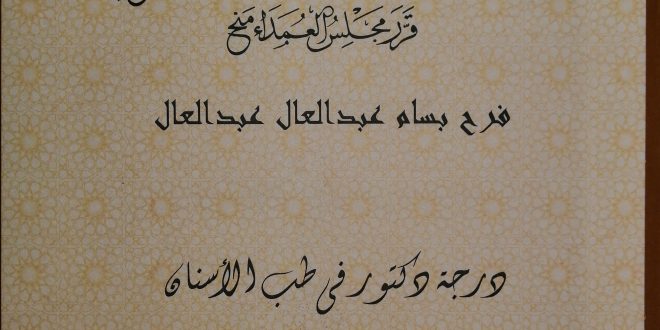 قرّر مجلس العمداء منح
فرح بسام عبدالعال عبدالعال
درجة دكتور في طب الأسنان